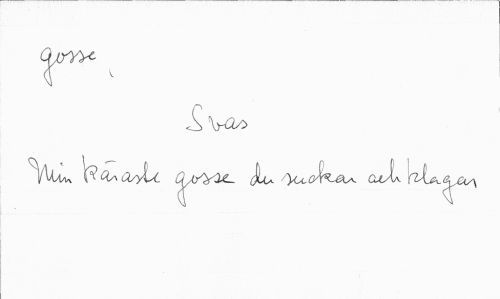 gosse,
Svas
Min käraste gosse du suckar och klagar